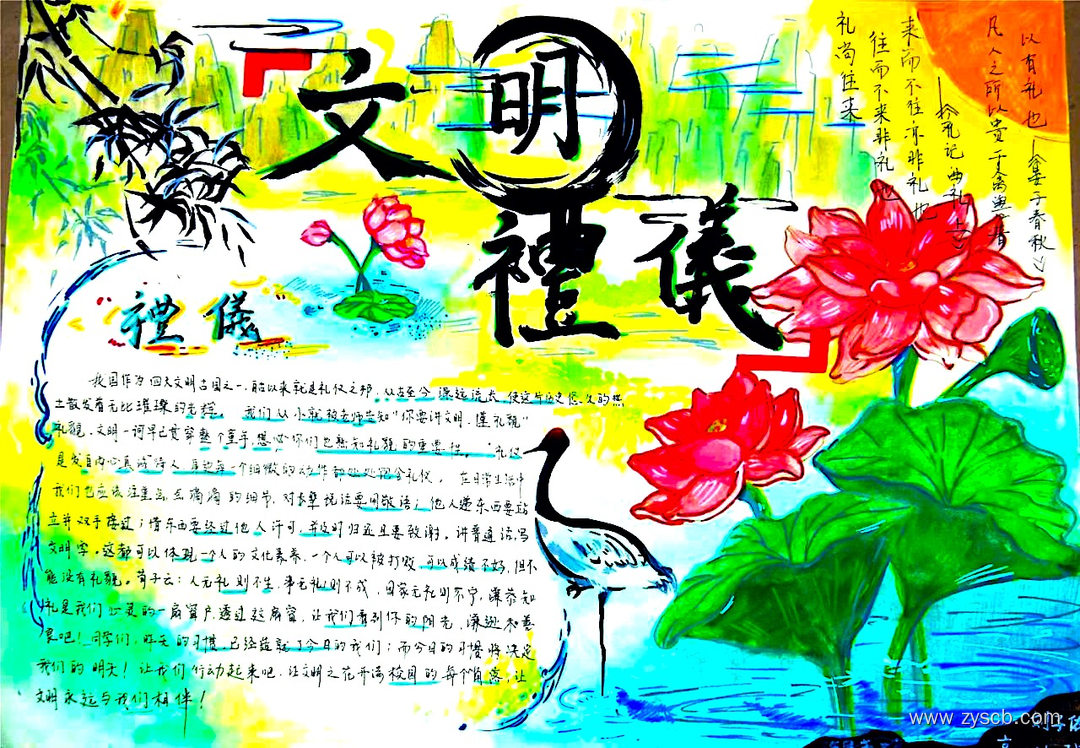 文明
禮儀
以有礼也——《晏子春秋》
凡人之所以贵于禽兽者
——《礼记·曲礼上》
来而不往亦非礼也
往而不来非礼也
礼尚往来
禮儀
我国作为四大文明古国之一,自古以来就是礼仪之邦,从古至今源远流长,使这片历史悠久的热
土散发着无比璀璨的光辉。我们从小就被老师告知“你要讲文明,懂礼貌”
礼貌、文明一词早已贯穿整个童年,想必你们也熟知礼貌的重要性。“礼仪
是发自内心真诚待人,
我们也应该注重点点滴滴的细节,对长辈说话要用敬语;他人递东西要站
立并双手接过;借东西要经过他人许可,并及时归还且要致谢。讲普通话,写
文明字。这都可以体现一个人的文化素养。一个人可以被打败,可以成绩不好,但不
能没有礼貌。荀子云:人无礼则不生,事无礼则不成,国家无礼则不宁,谦恭知
礼是我们心灵的一扇窗户,透过这扇窗,让我们看到你的阳光、谦逊和善
良吧!同学们,昨天的习惯,已经造就了今日的我们;而今日的习惯将决定
我们的明天!让我们行动起来吧,让文明之花开满校园的每个角落,让
文明永远与我们相伴!
www.zyscb.com